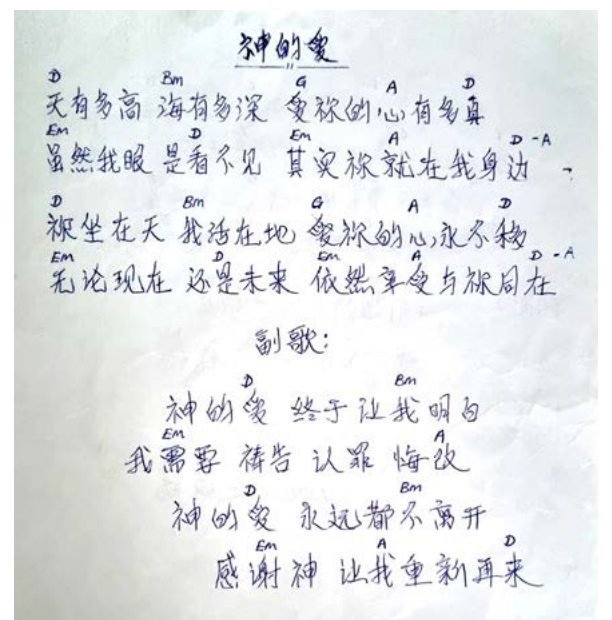 神的爱
D Bm G A D
天有多高 海有多深 爱祢的心有多真
Em D Em A D-A
虽然我眼 是看不见 其实祢就在我身边
D Bm G A D
祢坐在天 我活在地 爱祢的心永不移
Em D Em A D-A
无论现在 还是未来 依然享受与祢同在
副歌:
D Bm
神的爱 终于让我明白
Em A
我需要 祷告 认罪 悔改
D Bm
神的爱 永远都不离开
Em A D
感谢神 让我重新再来